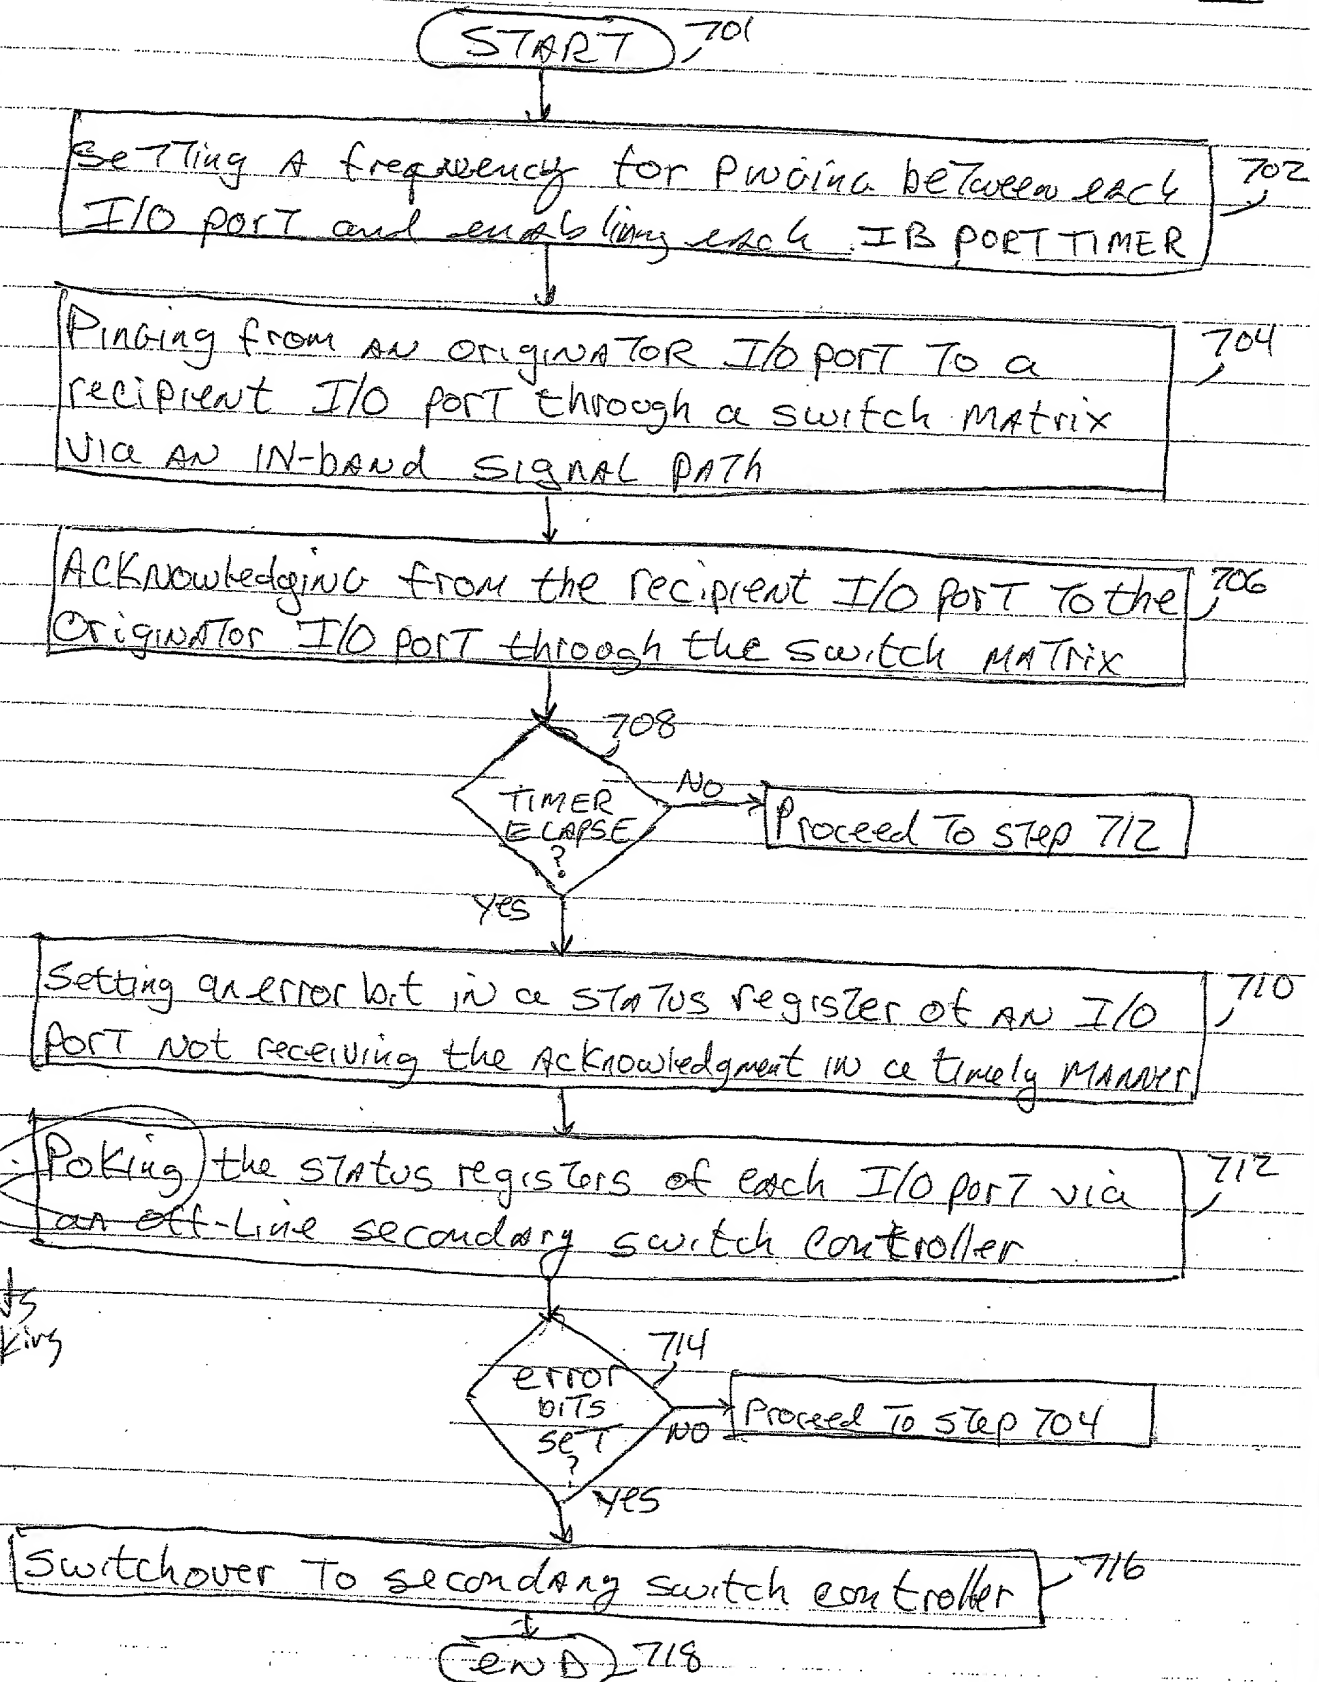 START 701
Setting A frequency for Pinging between each 702
I/O port and enabling each IB PORT TIMER
Pinging from AN ORIGINATOR I/O port To a 704
recipient I/O port through a switch MAtrix
via AN IN-bANd SIGNAL PATh
ACKNowledging from the recipient I/O port To the 706
OriginATor I/O port through the switch MATrix
708
TIMER
ELAPSE
?
NO
Proceed To step 712
Yes
Setting an error bit in a STATUS register of AN I/O 710
PorT Not receiving the Acknowledgment in a timely MANNer
Poking the STAtus registers of each I/O port via 712
an off-Line secondary switch controller
king
714
error
biTs
seT
?
NO
Proceed To step 704
Yes
Switchover To secondary switch controller 716
END 718